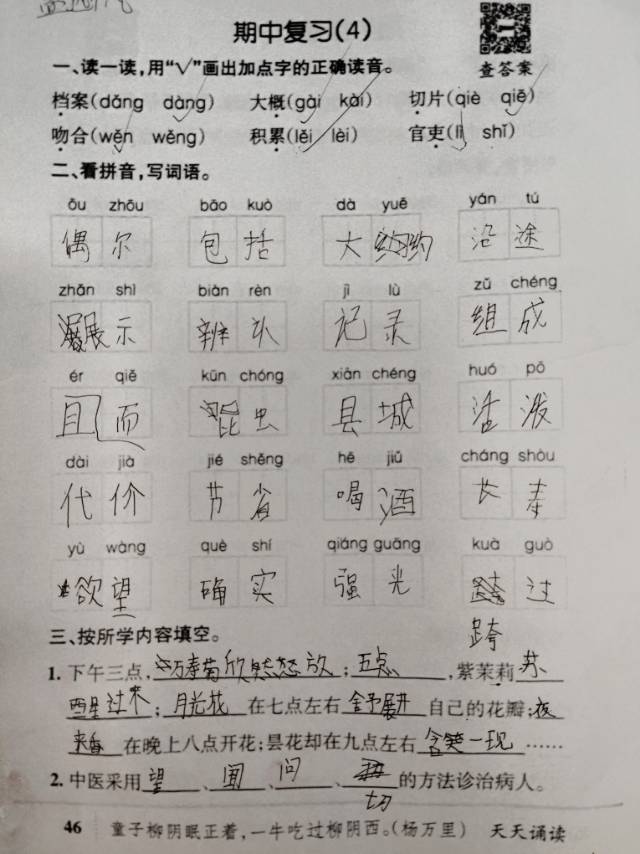 期中复习(4)
查答案
一、读一读,用“√”画出加点字的正确读音。
档案(dǎng dàng) 大概(gài kài) 切片(qiè qiē)
吻合(wěn wěng) 积累(lěi lèi) 官吏(lì shǐ)
二、看拼音,写词语。
ǒu zhōu bāo kuò dà yuē yán tú
偶尔 包括 大约 沿途
zhǎn shì biàn rèn jì lù zǔ chéng
展示 辨认 记录 组成
ér qiě kūn chóng xiàn chéng huó pō
且而 昆虫 县城 活泼
dài jià jié shěng hē jiǔ cháng shòu
代价 节省 喝酒 长寿
yù wàng què shí qiáng guāng kuà guò
欲望 确实 强光 过
跨
三、按所学内容填空。
1.下午三点,万寿菊欣然怒放;五点,紫茉莉苏
醒过来;月光花在七点左右舒展开自己的花瓣;夜
来香在晚上八点开花;昙花却在九点左右含笑一现……
2.中医采用望、闻、问、切的方法诊治病人。
46 童子柳阴眠正着,一牛吃过柳阴西。(杨万里) 天天诵读